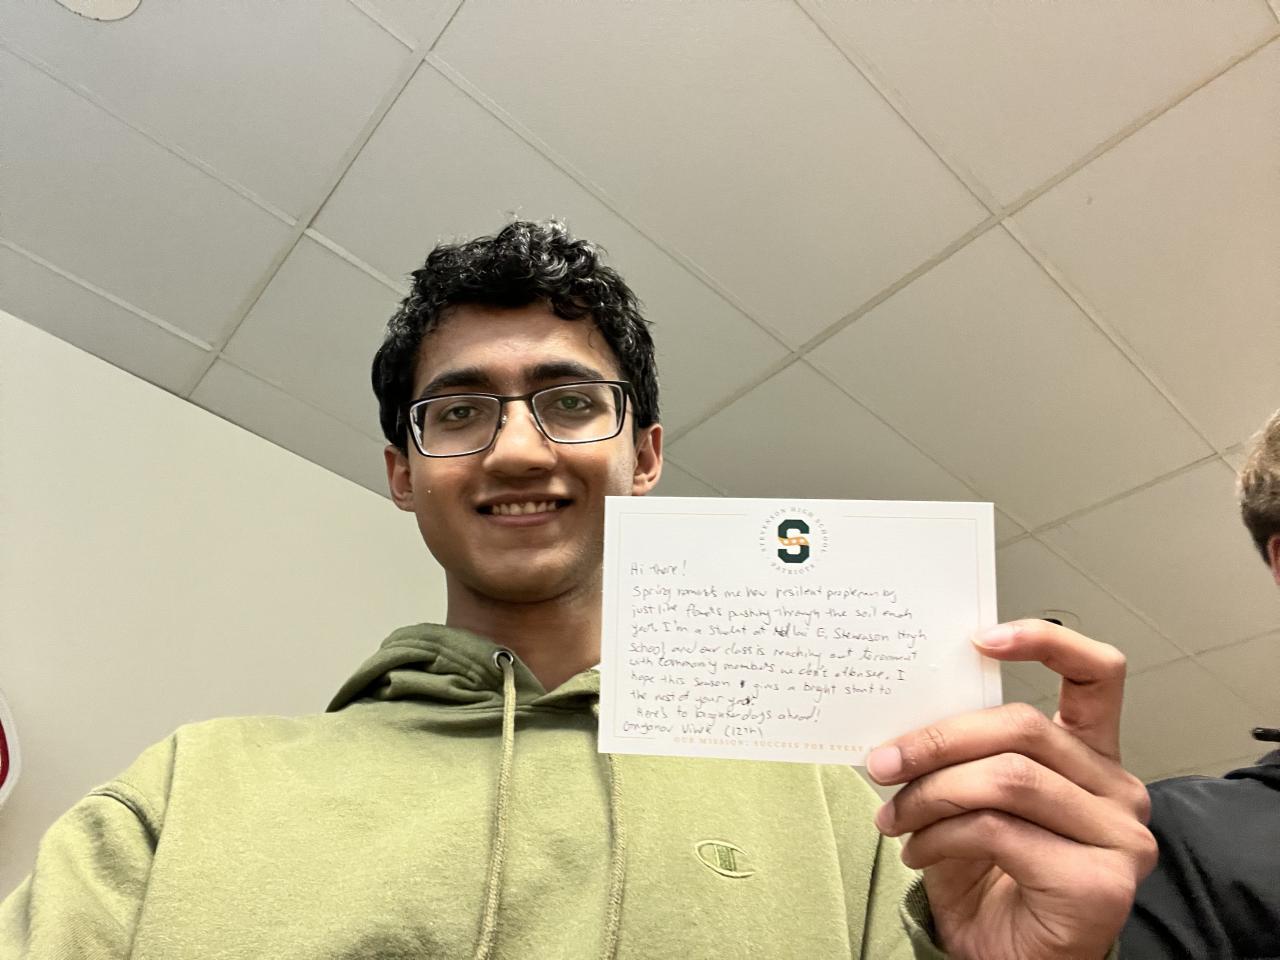 STEVENSON HIGH SCHOOL
S
PATRIOTS
Hi there!
Spring reminds me how resilient people can be,
just like flowers pushing through the soil each
year. I'm a student at Adlai E. Stevenson High
School, and our class is reaching out to connect
with community members we don't often see. I
hope this season gives a bright start to
the rest of your year.
Here's to brighter days ahead!
Vivek (12th)
OUR MISSION: SUCCESS FOR EVERY
C